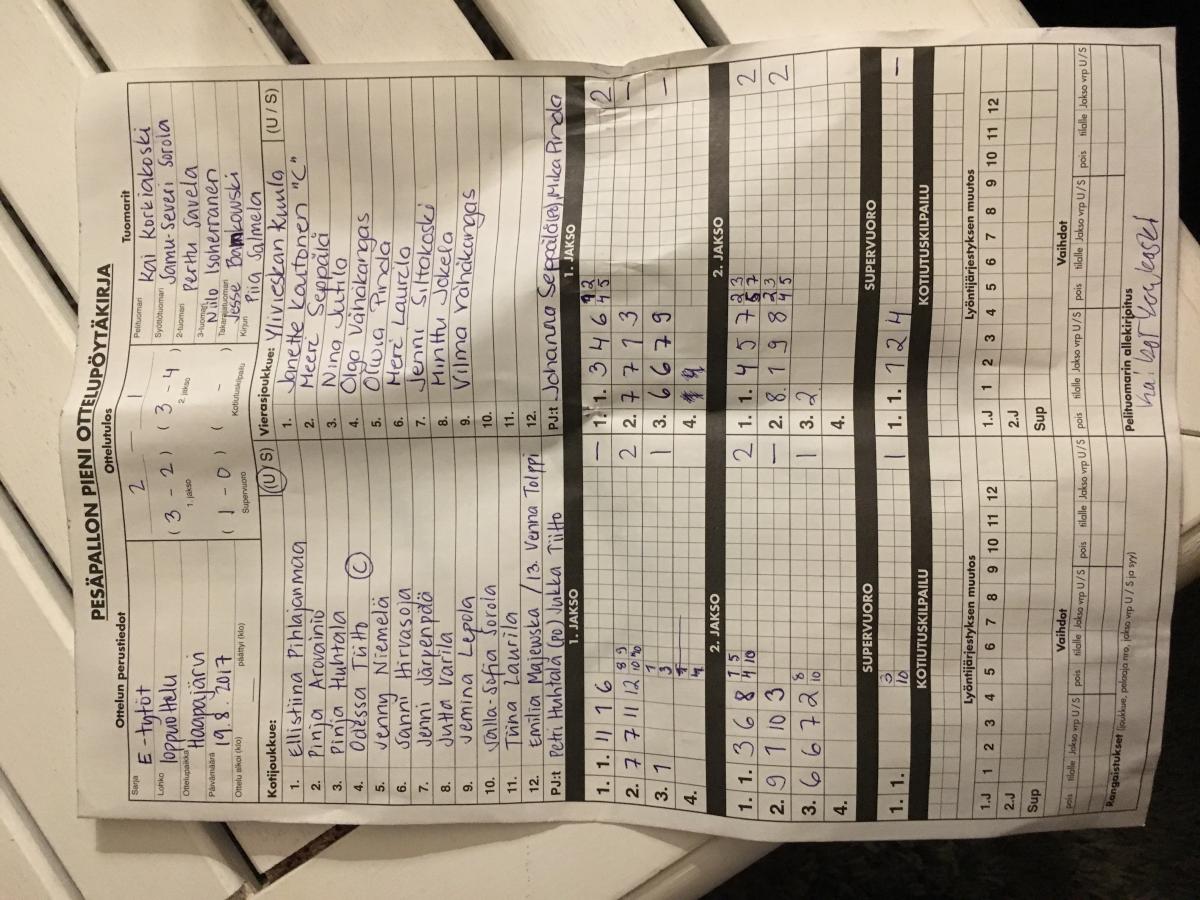 PESÄPALLON PIENI OTTELUPÖYTÄKIRJA
Ottelun perustiedot
Ottelutulos
Tuomarit
Sarja
E-tytöt
Lohko
loppuottelu
Ottelupaikka
Haapajärvi
Päivämäärä
19.8.2017
Ottelu alkoi (klo) päättyi (klo)
2 1
(3 - 2) (3 - 4)
1. jakso 2. jakso
(1 - 0) ( - )
Supervuoro Kotiutuskilpailu
Pelituomari
Kai Korkiakoski
Syöttötuomari
Samu-Severi Sorola
2-tuomari
Perttu Savela
3-tuomari
Niilo Isoherranen
Takarajatuomari
Jesse Bankowski
Kirjuri
Piia Salmela
Kotijoukkue: (U / S)
1. Ellistiina Pihlajanmaa
2. Pinja Aravainio
3. Pinja Huhtala
4. Odessa Tiitto C
5. Jenny Niemelä
6. Sanni Hirvasoja
7. Jenni Järvenpää
8. Jutta Varila
9. Jemina Lepola
10. Salla-Sofia Sorola
11. Tiina Laurila
12. Emilia Majewska / 13. Venna Tolppi
PJ:t Petri Huhtala (po) Jukka Tiitto
Vierasjoukkue: Ylivieskan Kuula (U / S)
1. Janette Kautonen "C"
2. Meeri Seppälä
3. Nina Jutila
4. Olga Vähäkangas
5. Olivia Pirnola
6. Meri Laurela
7. Jenni Siltakoski
8. Minttu Jokela
9. Vilma Vähäkangas
10.
11.
12.
PJ:t Johanna Seppälä (po), Mika Pirnola
1. JAKSO 1. JAKSO
1. 1. 11 1 6 –
2. 7 7 11 12 2
3. 1 1
4.
1. 1. 3 4 6 2
2. 7 7 1 3 –
3. 6 6 7 9 –
4.
2. JAKSO 2. JAKSO
1. 1. 3 6 8 2
2. 9 1 10 3 –
3. 6 6 7 2 1
4.
1. 1. 4 5 7 2
2. 8. 1 9 8 2
3. 2
4.
SUPERVUORO SUPERVUORO
1. 1. 1
1. 1. 1 2 4 –
KOTIUTUSKILPAILU KOTIUTUSKILPAILU
Lyöntijärjestyksen muutos Lyöntijärjestyksen muutos
1.J 1 2 3 4 5 6 7 8 9 10 11 12
2.J
Sup
1.J 1 2 3 4 5 6 7 8 9 10 11 12
2.J
Sup
Vaihdot Vaihdot
pois tilalle Jakso vrp U / S pois tilalle Jakso vrp U / S pois tilalle Jakso vrp U / S
pois tilalle Jakso vrp U / S pois tilalle Jakso vrp U / S pois tilalle Jakso vrp U / S
Rangaistukset (joukkue, pelaaja nro, jakso vrp U / S ja syy)
Pelituomarin allekirjoitus
Kai Korkiakoski